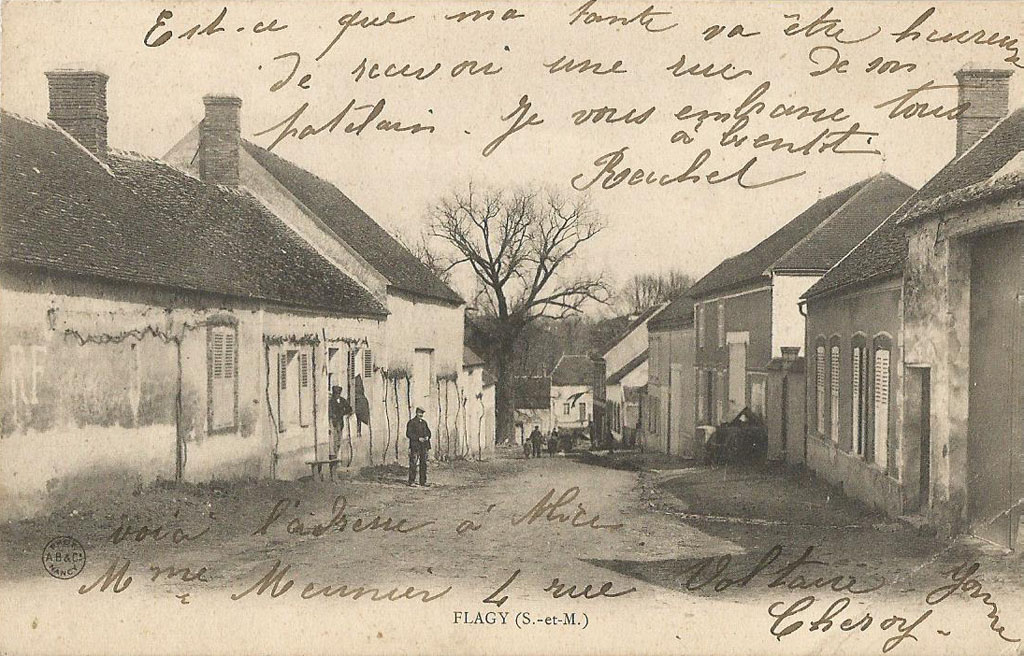 Est-ce que ma tante va être heureuse
de recevoir une rue de son
patelain. Je vous embrasse tous
à bientôt
Rachel
RF
voià l'adresse à Alice
Mme Meunier 4 rue Voltaire Yonne
Cheroy
A.B & Cie
NANCY
FLAGY (S.-et-M.)